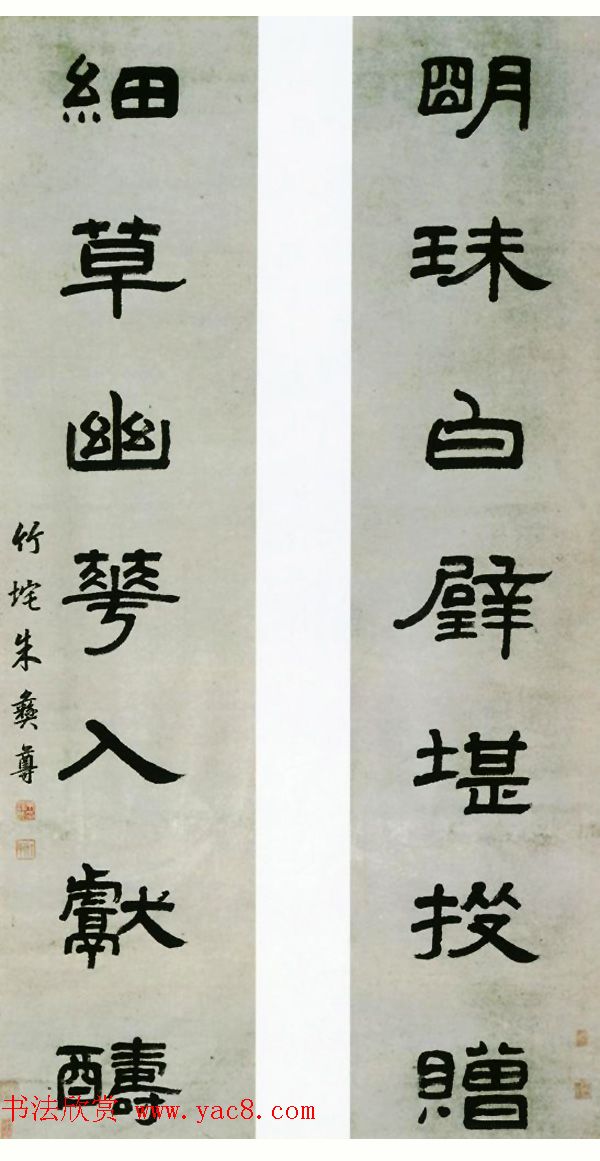 朙珠白璧堪投贈
細草幽華入獻醻
竹垞朱彝尊
书法欣赏 www.yac8.com